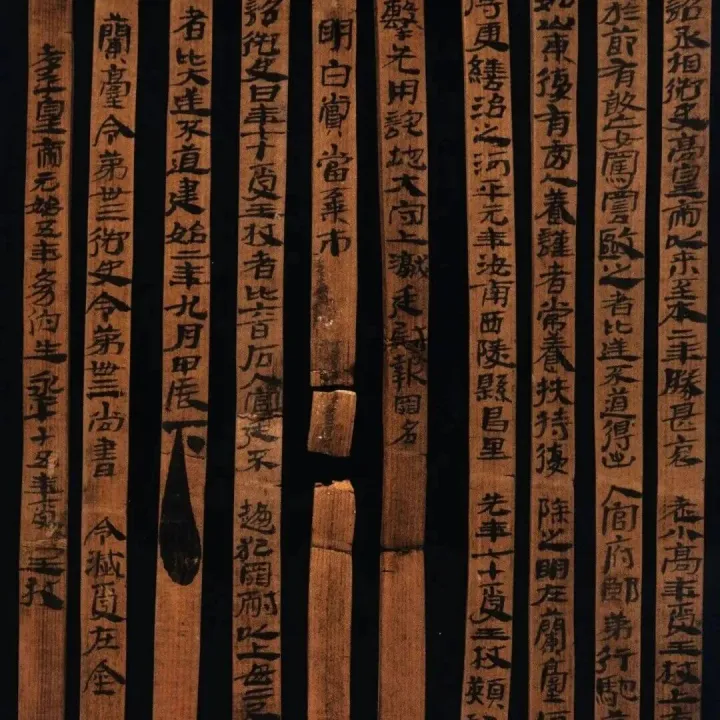 詔丞相御史高皇帝以來至本二年勝甚哀老小高年受王杖上
於節有敢妄罵詈毆之者比逆不道得出入官府郎第行馳
如山東復有旁人養謹者常養扶持復除之明在蘭臺
得更繕治之河平元年汝南西陵縣昌里先年七十受王杖熲
擊先用詫地大守上讞廷尉報罪名
明白賞當棄市
詔御史曰年七十受王杖者比六百石入宮廷不趨犯罪耐以上毋二
者比大逆不道建始二年九月甲辰下
蘭臺令第卌三御史令第卌三尚書令滅受在金
孝平皇帝元始五年幼伯生永平十五年受王杖